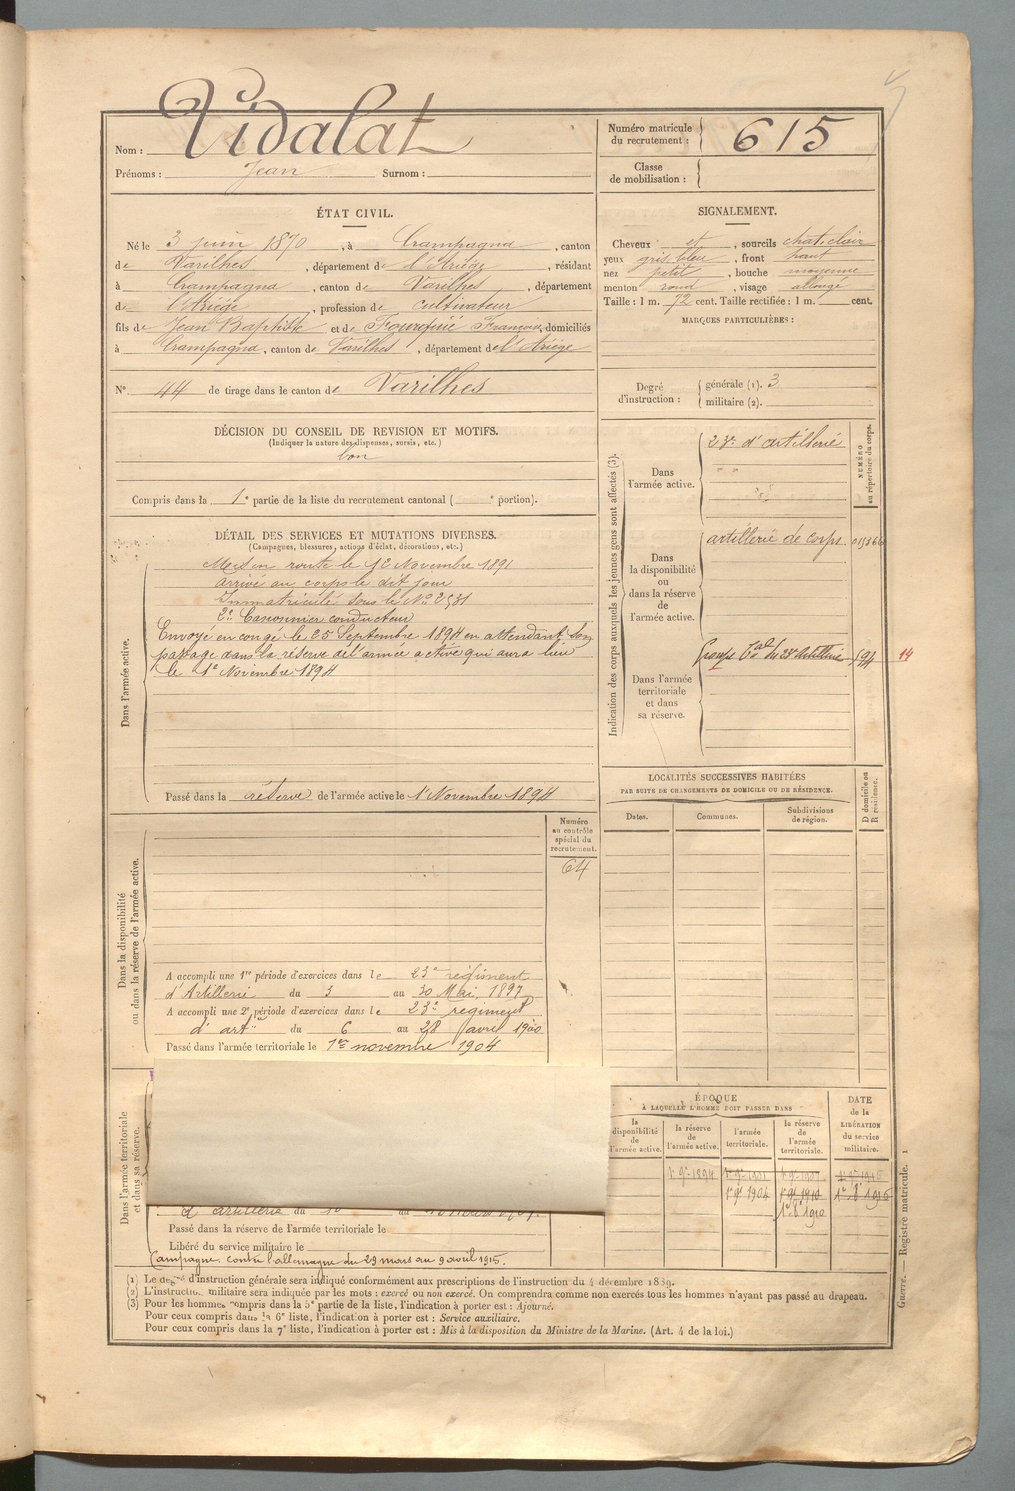 Nom : Vidalat
Prénoms : Jean Surnom :
Numéro matricule du recrutement : 615
Classe de mobilisation :
ÉTAT CIVIL.
Né le 3 juin 1870, à Crampagna, canton
de Varilhes, département de l'Ariège, résidant
à Crampagna, canton de Varilhes, département
de l'Ariège, profession de cultivateur
fils de Jean Baptiste et de Françoise, domiciliés
à Crampagna, canton de Varilhes, département de l'Ariège
N° 44 de tirage dans le canton de Varilhes
SIGNALEMENT.
Cheveux et, sourcils chat. clair
yeux gris bleu, front haut
nez petit, bouche moyenne
menton rond, visage allongé
Taille : 1 m. 72 cent. Taille rectifiée : 1 m. cent.
MARQUES PARTICULIÈRES :
Degré d'instruction : générale (1). 3
militaire (2).
DÉCISION DU CONSEIL DE REVISION ET MOTIFS.
(Indiquer la nature des dispenses, sursis, etc.)
bon
Compris dans la 1e partie de la liste du recrutement cantonal ( e portion).
DÉTAIL DES SERVICES ET MUTATIONS DIVERSES.
(Campagnes, blessures, actions d'éclat, décorations, etc.)
Dans l'armée active.
Mis en route le 12 Novembre 1891
arrivé au corps le dit jour
Immatriculé sous le No 2531
2e Canonnier conducteur
Envoyé en congé le 25 Septembre 1894 en attendant son
passage dans la réserve de l'armée active qui aura lieu
le 1e Novembre 1894
Passé dans la réserve de l'armée active le 1 Novembre 1894
Indication des corps auxquels les jeunes gens sont affectés (3).
NUMÉRO au répertoire du corps.
Dans l'armée active.
23e d'artillerie
Dans la disponibilité ou dans la réserve de l'armée active.
artillerie de corps.
Dans l'armée territoriale et dans sa réserve.
Groupe tal du 23e Artillerie 594 14
LOCALITÉS SUCCESSIVES HABITÉES
PAR SUITE DE CHANGEMENTS DE DOMICILE OU DE RÉSIDENCE.
Dates. Communes. Subdivisions de région.
D domicile ou R résidence.
Dans la disponibilité ou dans la réserve de l'armée active.
Numéro au contrôle spécial du recrutement.
64
A accompli une 1re période d'exercices dans le 23e régiment
d'Artillerie du 3 au 30 Mai 1897
A accompli une 2e période d'exercices dans le 23e régiment
d'artie du 6 au 28 avril 1900
Passé dans l'armée territoriale le 1er novembre 1904
Dans l'armée territoriale et dans sa réserve.
d'artillerie du au
Passé dans la réserve de l'armée territoriale le
Libéré du service militaire le
Campagne contre l'allemagne du 29 mars au 9 avril 1915.
ÉPOQUE
À LAQUELLE L'HOMME DOIT PASSER DANS
la disponibilité de l'armée active. la réserve de l'armée active. l'armée territoriale. la réserve de l'armée territoriale.
DATE de la LIBÉRATION du service militaire.
1er 9bre 1894
1er 9bre 1904 1er 9bre 1910
(1) Le degré d'instruction générale sera indiqué conformément aux prescriptions de l'instruction du 4 décembre 1889.
(2) L'instruction militaire sera indiquée par les mots : exercé ou non exercé. On comprendra comme non exercés tous les hommes n'ayant pas passé au drapeau.
(3) Pour les hommes compris dans la 5e partie de la liste, l'indication à porter est : Ajourné.
Pour ceux compris dans la 6e liste, l'indication à porter est : Service auxiliaire.
Pour ceux compris dans la 7e liste, l'indication à porter est : Mis à la disposition du Ministre de la Marine. (Art. 4 de la loi.)
Guerre. — Registre matricule. 1